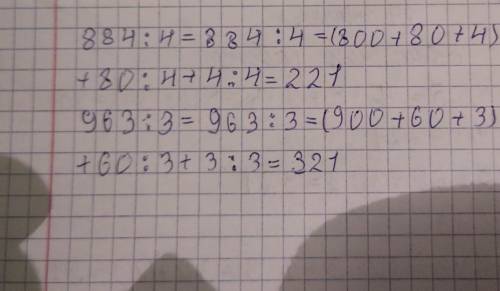 884:4=884:4=(800+80+4)
+80:4+4:4=221
963:3=963:3=(900+60+3)
+60:3+3:3=321